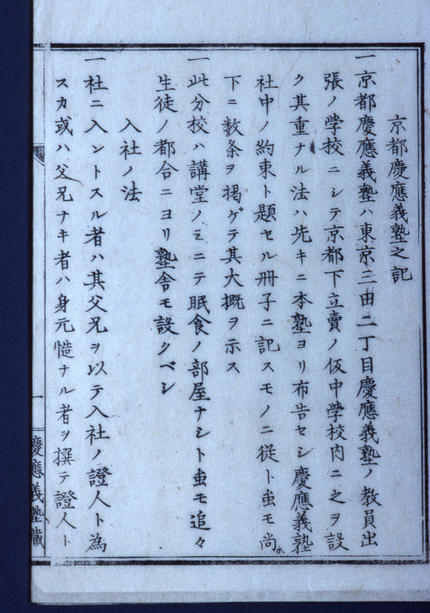 京都慶應義塾之記
一京都慶應義塾ハ東京三田二丁目慶應義塾ノ教員出
張ノ学校ニシテ京都下立賣ノ仮中学校内ニ之ヲ設
ク其重ナル法ハ先キニ本塾ヨリ布告セシ慶應義塾
社中ノ約束ト題セル冊子ニ記スモノニ従ト虫モ尚ホ
下ニ数条ヲ掲ゲテ其大概ヲ示ス
一此分校ハ講堂ノミニテ眠食ノ部屋ナシト虫モ追々
生徒ノ都合ニヨリ塾舎モ設クベシ
入社ノ法
一社ニ入ントスル者ハ其父兄ヲ以テ入社ノ證人ト為
スカ或ハ父兄ナキ者ハ身元慥ナル者ヲ撰テ證人ト
一
慶應義塾蔵